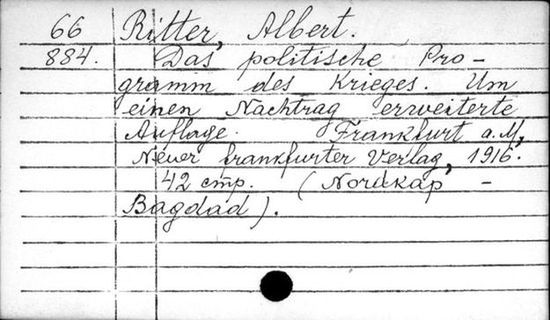 66 Ritter, Albert.
884. Das politische Pro-
gramm des Krieges. Um
einen Nachtrag erweiterte
Auflage. Frankfurt a.M,
Neuer frankfurter Verlag, 1916.
42 стр. (Nordkap -
Bagdad).